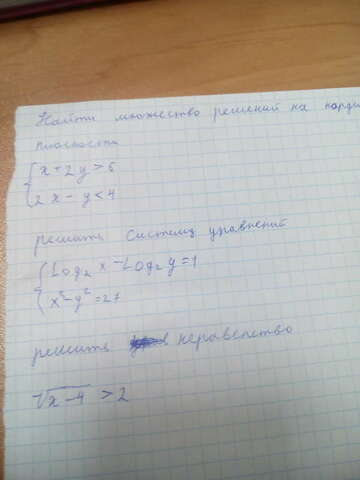 Найти множество решений на
плоскости
{ x + 2y > 6
2x - y < 4
решить систему уравнений
{ Log₂ x - Log₂ y = 1
x² - y² = 27
решить неравенство
√x-4 > 2